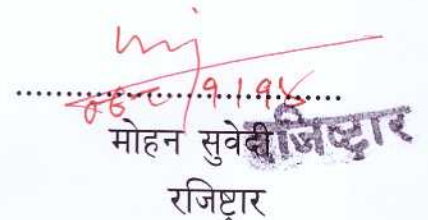 मोहन सुवेदी
रजिष्ट्रार
रजिष्ट्रार